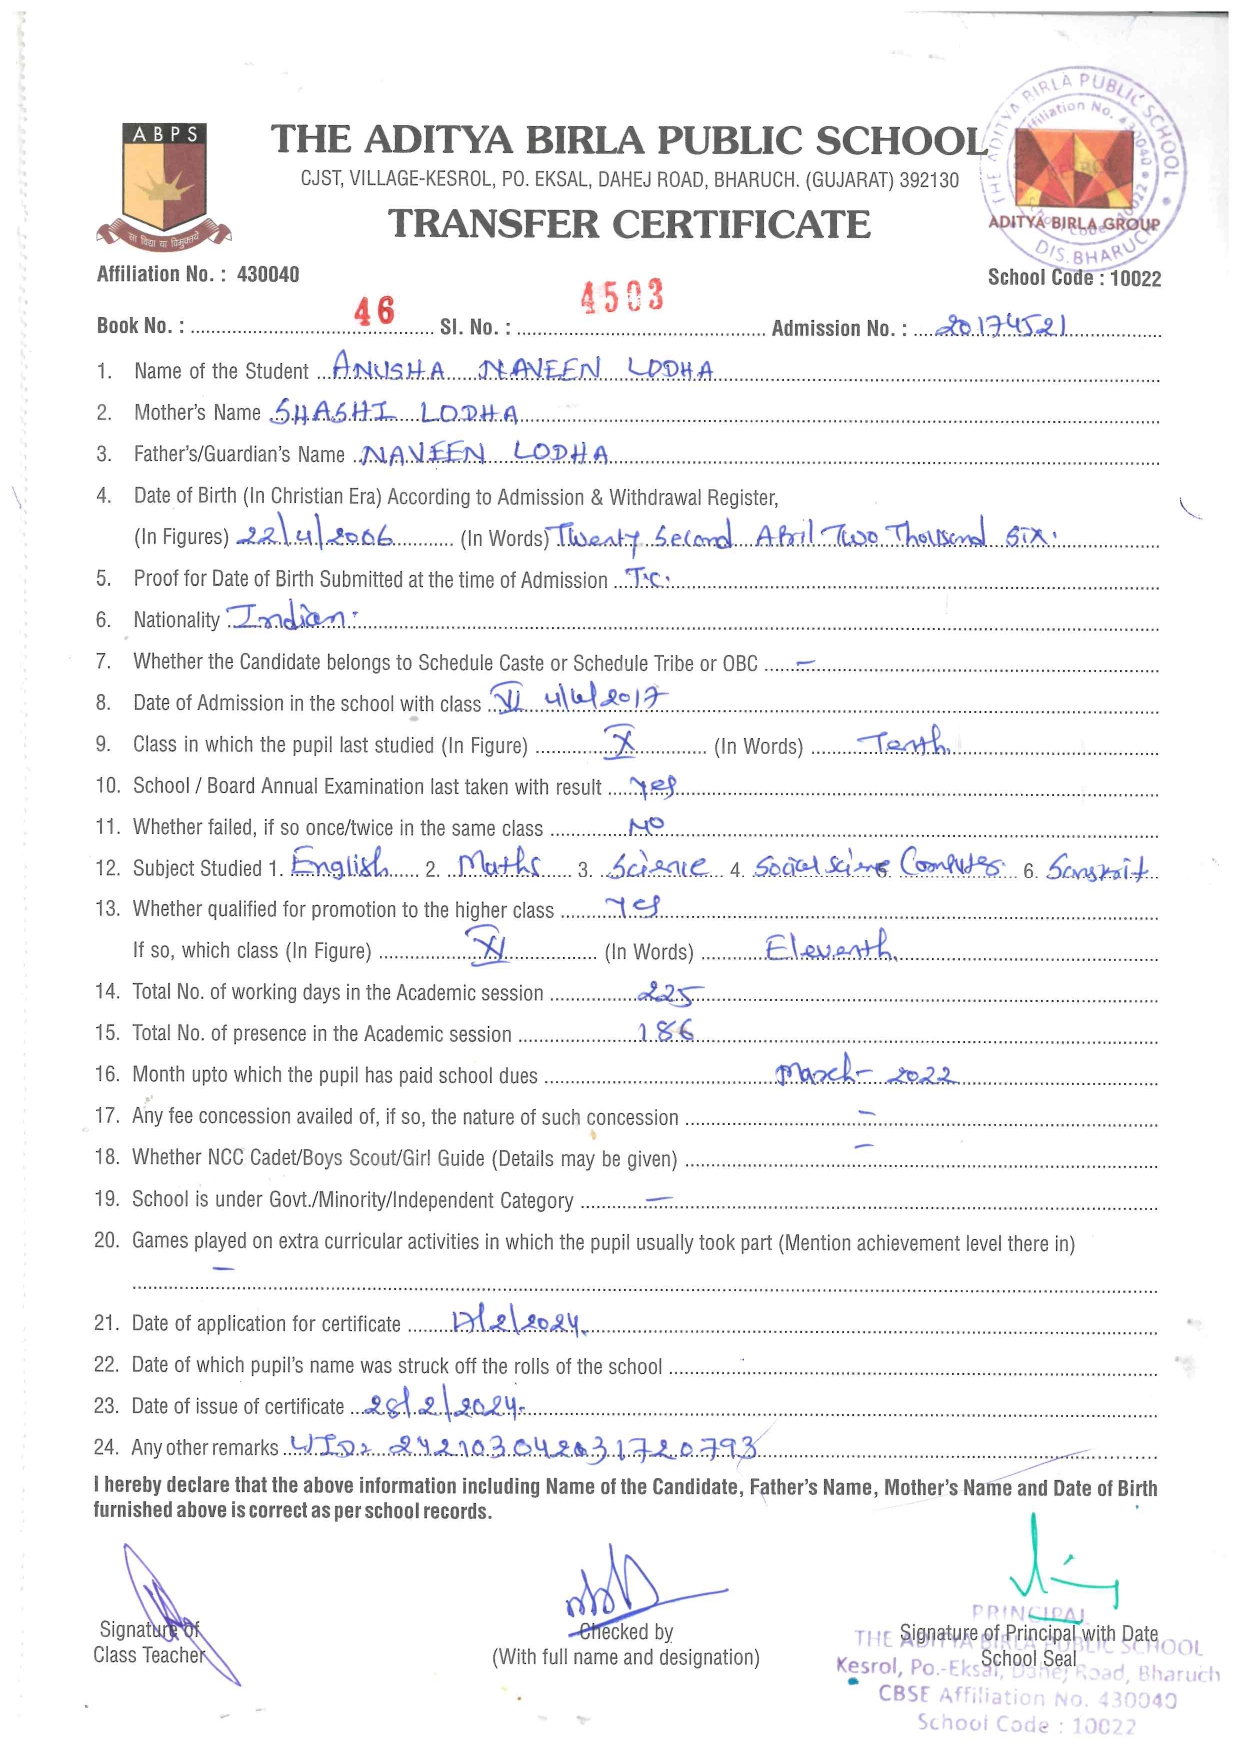 ABPS
सा विद्या या विमुक्तये
THE ADITYA BIRLA PUBLIC SCHOOL
CJST, VILLAGE-KESROL, PO. EKSAL, DAHEJ ROAD, BHARUCH. (GUJARAT) 392130
TRANSFER CERTIFICATE
THE ADITYA BIRLA PUBLIC SCHOOL
Affiliation No. 430040
School Code 10022
DIS. BHARUCH
ADITYA BIRLA GROUP
Affiliation No. : 430040 School Code : 10022
Book No. : 46 Sl. No. : 4503 Admission No. : 20174521
1. Name of the Student ANUSHA NAVEEN LODHA
2. Mother's Name SHASHI LODHA
3. Father's/Guardian's Name NAVEEN LODHA
4. Date of Birth (In Christian Era) According to Admission & Withdrawal Register,
(In Figures) 22/4/2006 (In Words) Twenty Second April Two Thousand Six.
5. Proof for Date of Birth Submitted at the time of Admission T.C.
6. Nationality Indian.
7. Whether the Candidate belongs to Schedule Caste or Schedule Tribe or OBC –
8. Date of Admission in the school with class VI 4/4/2017
9. Class in which the pupil last studied (In Figure) X (In Words) Tenth.
10. School / Board Annual Examination last taken with result Yes
11. Whether failed, if so once/twice in the same class NO
12. Subject Studied 1. English 2. Maths 3. Science 4. Social Science Computer 6. Sanskrit
13. Whether qualified for promotion to the higher class Yes
If so, which class (In Figure) XI (In Words) Eleventh.
14. Total No. of working days in the Academic session 225
15. Total No. of presence in the Academic session 186
16. Month upto which the pupil has paid school dues March - 2022
17. Any fee concession availed of, if so, the nature of such concession –
18. Whether NCC Cadet/Boys Scout/Girl Guide (Details may be given) –
19. School is under Govt./Minority/Independent Category –
20. Games played on extra curricular activities in which the pupil usually took part (Mention achievement level there in)
–
21. Date of application for certificate /2/2024.
22. Date of which pupil's name was struck off the rolls of the school
23. Date of issue of certificate 28/2/2024.
24. Any other remarks UID: 242103042031720793
I hereby declare that the above information including Name of the Candidate, Father's Name, Mother's Name and Date of Birth
furnished above is correct as per school records.
Signature of
Class Teacher
Checked by
(With full name and designation)
Signature of Principal with Date
School Seal
PRINCIPAL
THE ADITYA BIRLA PUBLIC SCHOOL
Kesrol, Po.-Eksal, Dahej Road, Bharuch
CBSE Affiliation No. 430040
School Code : 10022